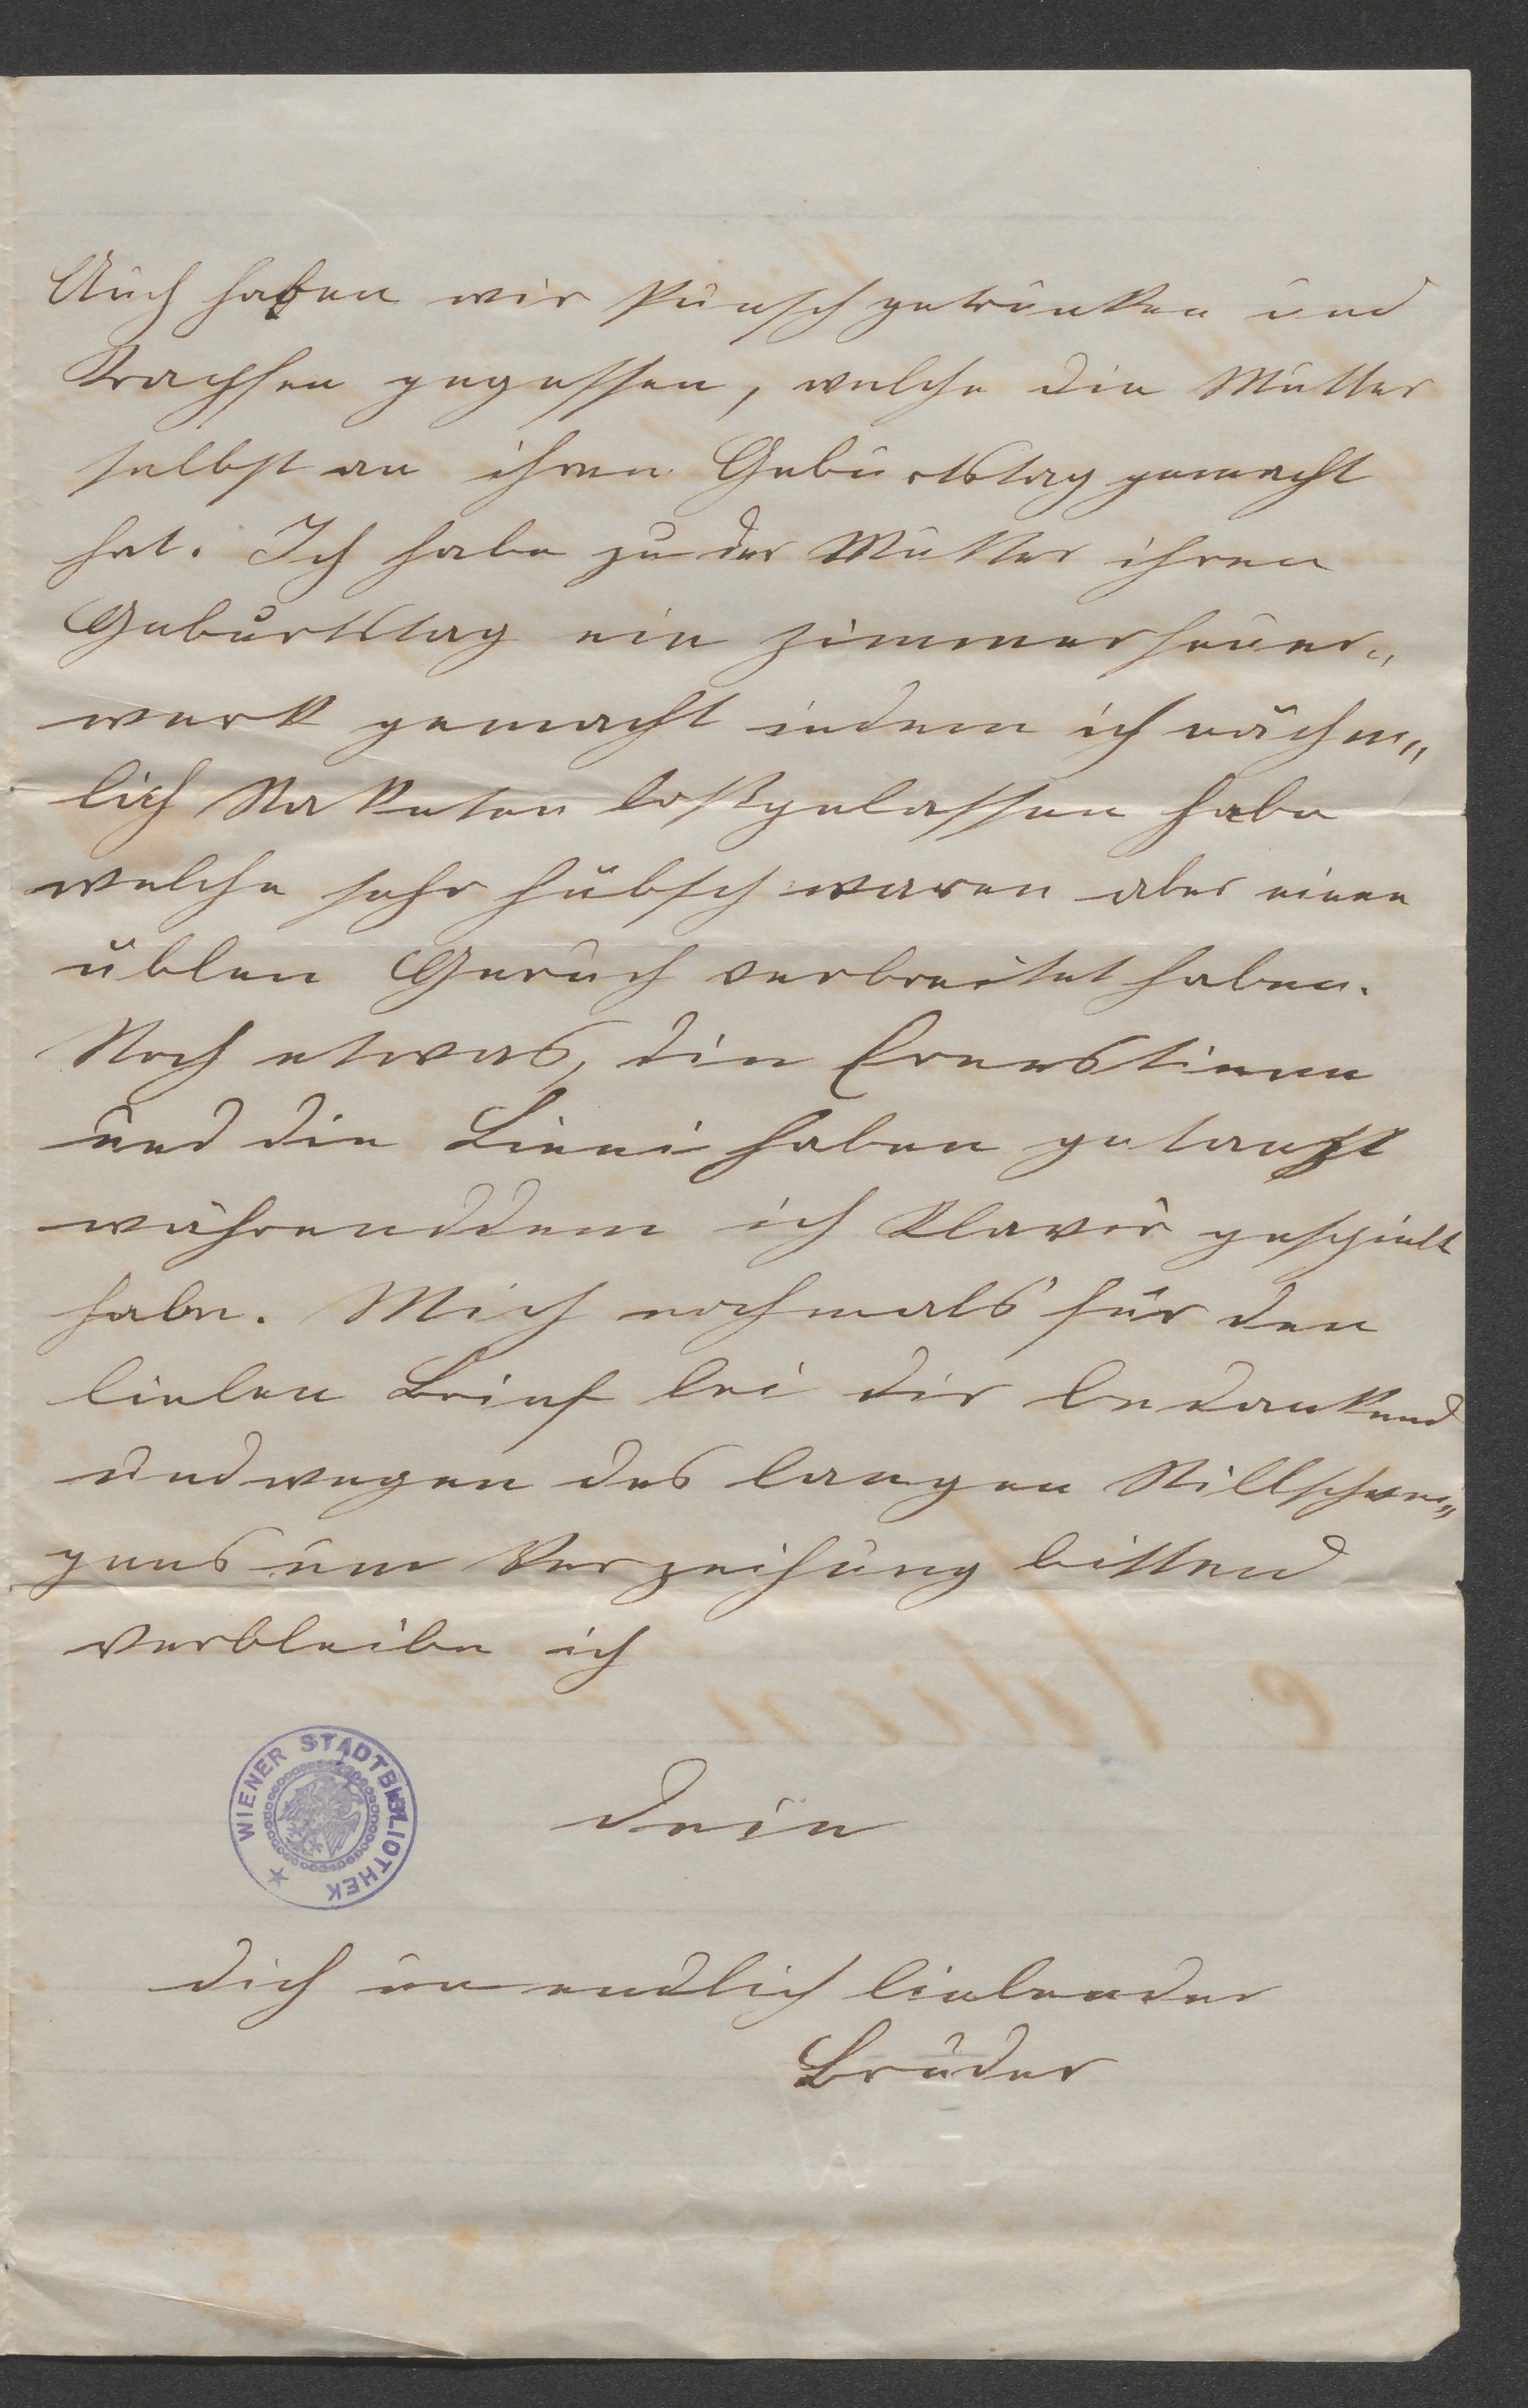 Auch haben wir Punsch getrunken und
Krapfen gegessen, welche die Mutter
selbst an ihren Geburtstag gemacht
hat. Ich habe zu der Mutter ihren
Geburtstag ein Zimmerfeuer„
werk gemacht indem ich nähm„
lich Raketen loßgelassen habe
welche sehr hübsch waren aber einen
üblen Geruch verbreitet haben.
Noch etwas, die Ernestienne
und die Linni haben getanzt
währenddem ich Klavir gespielt
habe. Mich nochmals für den
lieben Brief bei dir bedankend
und wegen des langen Stillschwei„
gens um Verzeihung bittend
verbleibe ich
WIENER STADTBIBLIOTHEK
dein
dich unendlich liebender
Bruder